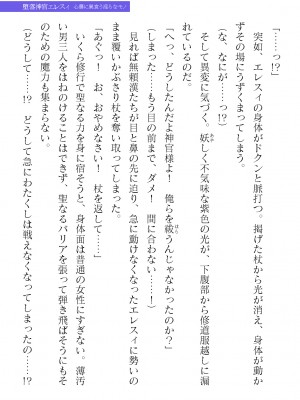 堕落神官エレスィ 心臓に巣食う淫らなモノ
「……っ!?」
突如、エレスィの身体がドクンと脈打つ。掲げた杖から光が消え、身体が動か
ずその場にうずくまってしまう。
(な、なにが……っ!?)
そして異変に気づく。妖しく不気味な紫色の光が、下腹部から修道服越しに漏
れているのだ。
「へっ、どうしたんだよ神官様よ! 俺らを祓うんじゃなかったのか?」
(しまった……もう目の前まで、ダメ! 間に合わない……!)
見れば無頼漢たちが目と鼻の先に迫り、動けなくなったエレスィに勢いの
まま覆いかぶさり杖を奪い取ってしまった。
「あぐっ! お、おやめなさい! 杖を返して……」
いくら修行で聖なる力を身に宿そうと、身体面は普通の女性にすぎない。薄汚
い男三人をはねのけることはできず、聖なるバリアを張って弾き飛ばそうにもそ
のための魔力も集まらない。
(どうして……!? どうして急にわたくしは戦えなくなってしまったの……!?